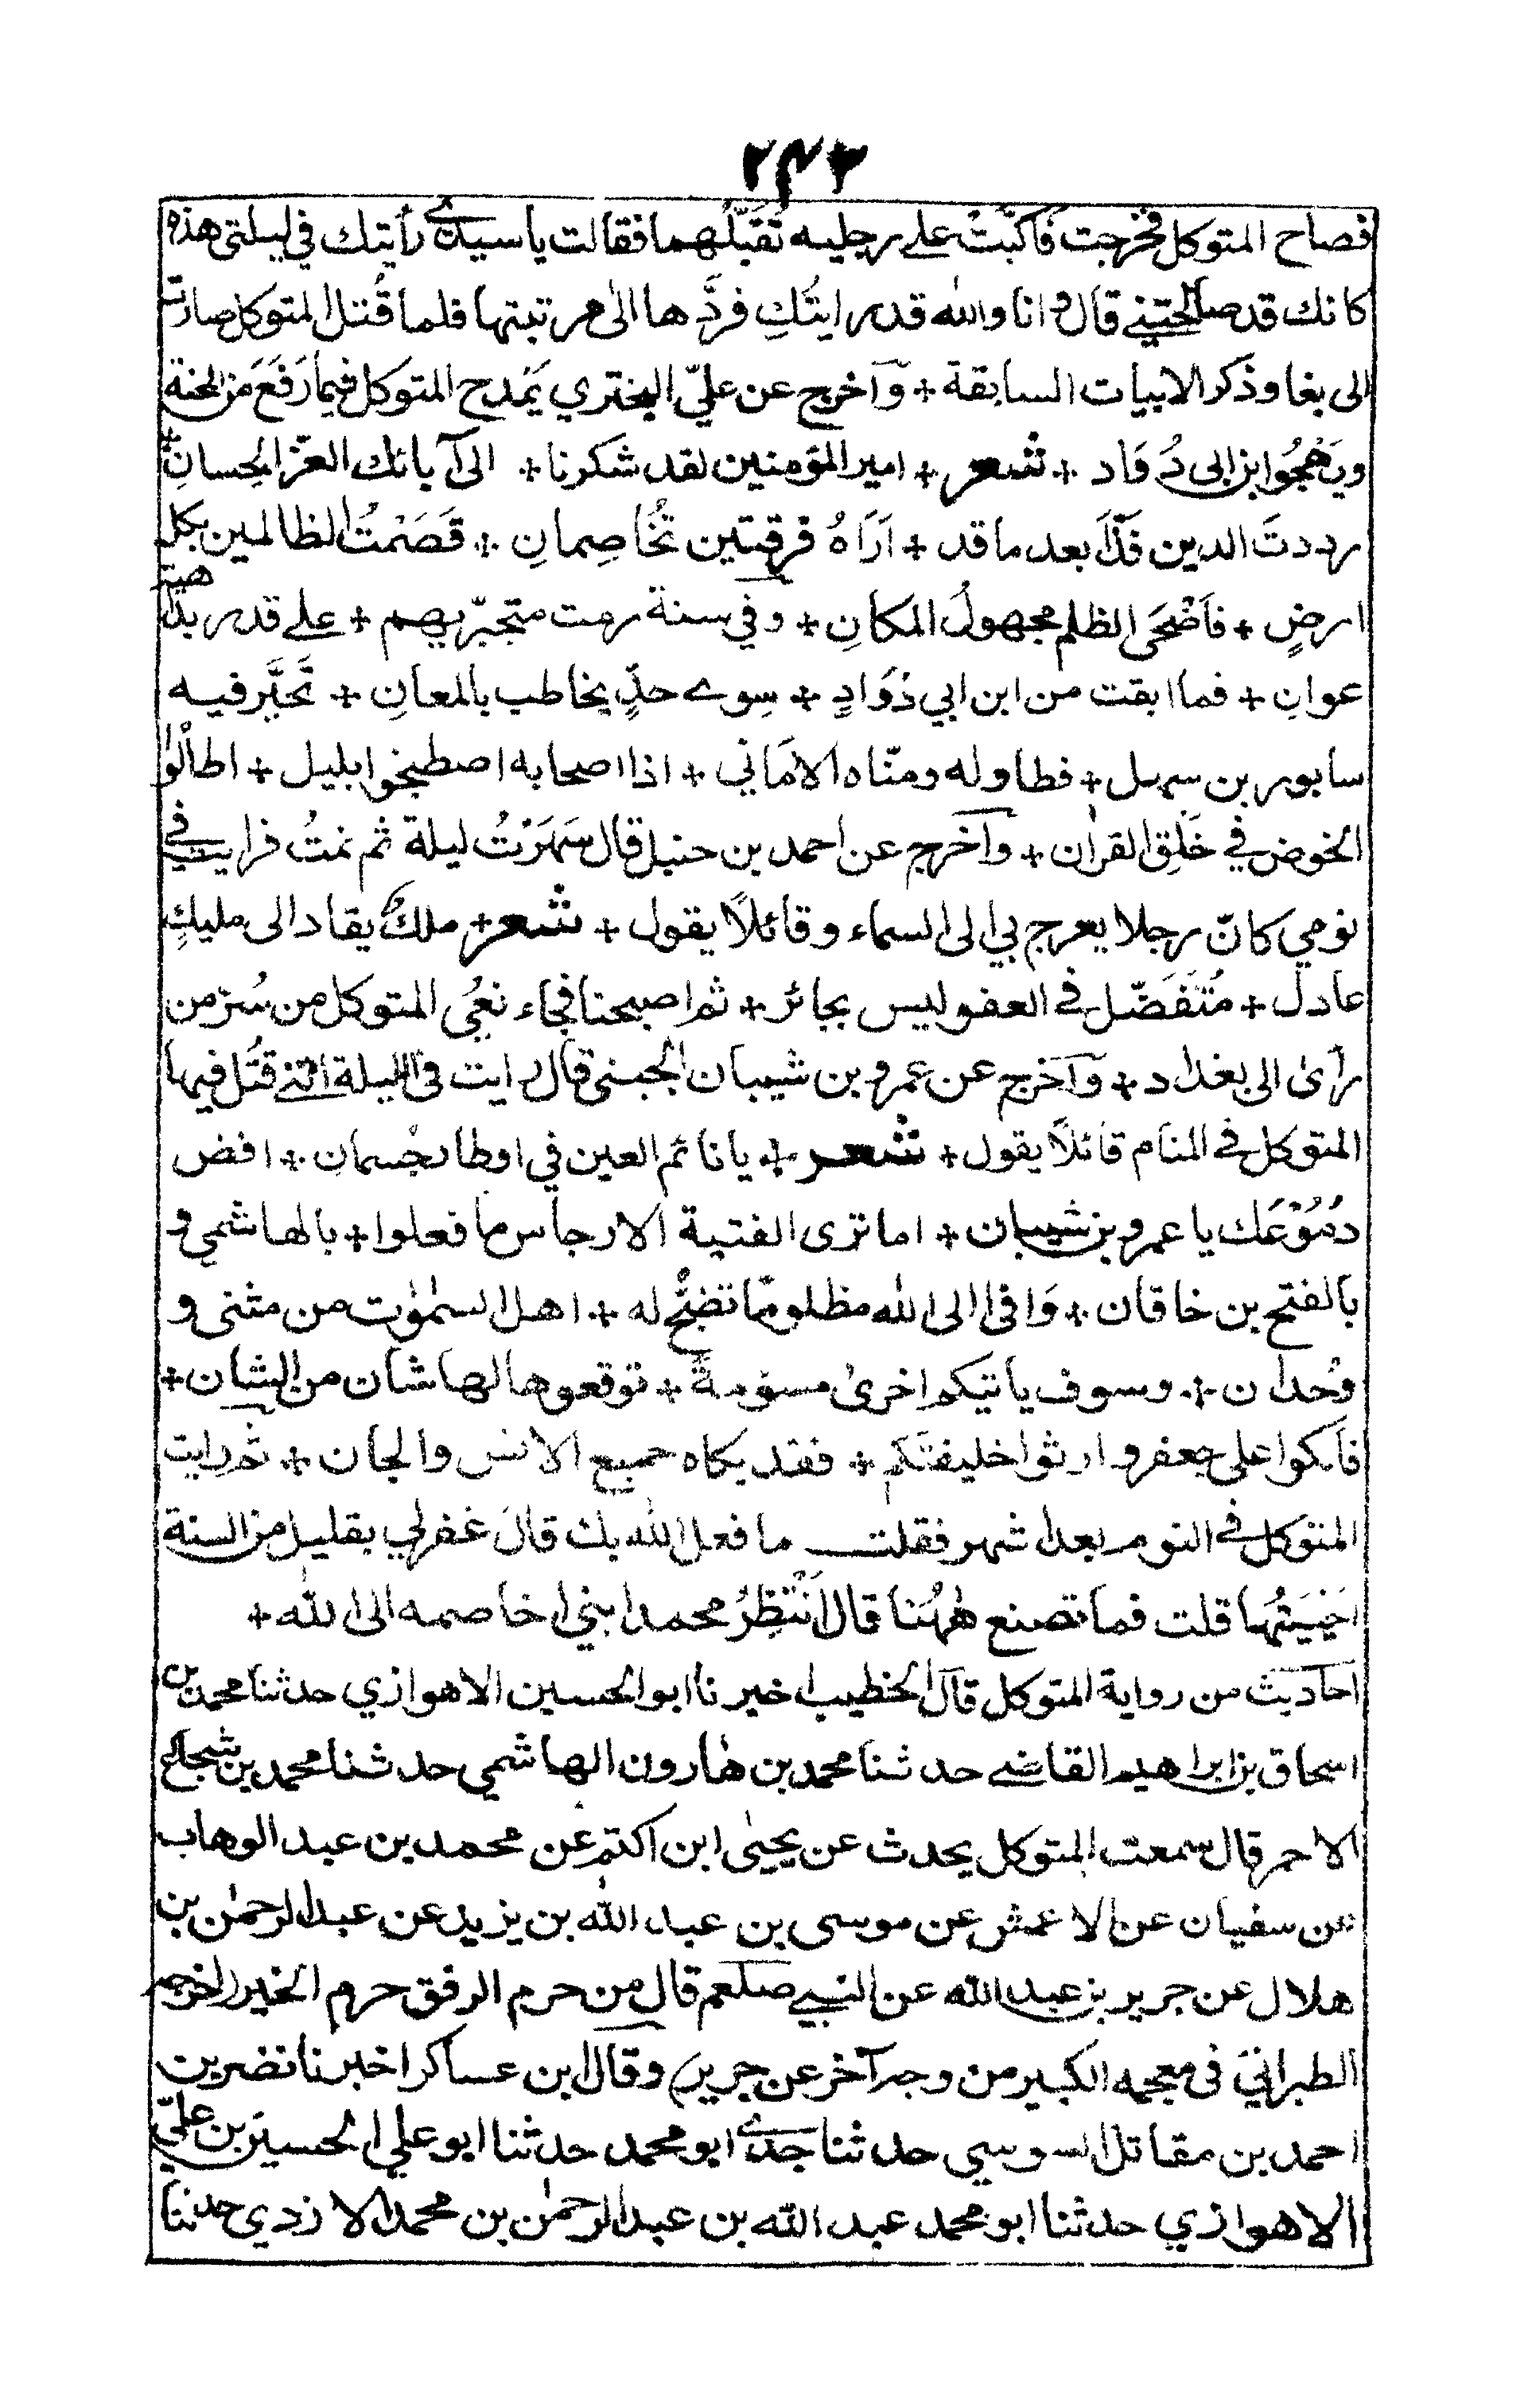 ٢٤٣
فصاح المتوكل فخرجت فَاكبَّتْ على رجليه تُقَبِّلُهما فقالت يا سيدي رأيتك في ليلتي هذه
كانك قد صالحتني قال وانا والله قد رايتُكِ فردَّها الى مرتبتها فلما قُتل المتوكل صارت
الى بغا وذكر الابيات السابقة + وآخرج عن عليّ البختري يَمْدح المتوكل فيما رَفَعَ من المحنة
ويَهْجُوا بن ابى دُوَاد + شعر + امير المؤمنين لقد شكرنا + الى آبائك الغرّ الحِسانِ +
رددتَ الدين فَذًّا بعد ما قد + اَرَاهُ فرقتين تُخَاصِمانِ + قَصَمْتُ الظالمين بكل
ارضٍ + فاَضْحَى الظلم مجهولُ المكانِ + وفي سنة رمت متجبّريهم + على قدر بداهية
عوانِ + فما ابقت من ابن ابي دُوَادٍ + سِوى حدٍّ يخاطب بالمعانِ + تَحَيَّر فيه
سابور بن سهل + فطاوله ومنّاه الاَمَاني + اذا اصحابه اصطبخوا بليل + اطالُوا
الخوض في خَلِق القران + وآخرج عن احمد بن حنبل قال سَهَرْتُ ليلة ثم نمتُ فرايت في
نومي كانّ رجلا يعرج بي الى السماء وقائلًا يقول + شعر + ملكٌ يقاد الى مليكٍ
عادل + مُتَفَضّل في العفو ليس بجائر + ثم اصبحنا فجاء نعْى المتوكل من سُرّ من
رأى الى بغداد + وآخرج عن عمرو بن شيبان الجهني قال رايت في الليلة التي قُتل فيها
المتوكل في المنام قائلًا يقول + شعر + يا نائم العين في اوطار جُسمانِ + افض
دُمُوْعَك يا عمرو بن شيبان + اما ترى الفتية الارجاس ما فعلوا + بالهاشمي و
بالفتح بن خاقان + وَافى الى الله مظلومًا تضجّ له + اهل السمٰوٰت من مثنى و
وُحدان + وسوف ياتيكم اخرىٰ مسوّمةً + توقعوها لها شان من الشان +
فابكوا على جعفر وارثوا خليفتكم + فقد بكاه جميع الانس والجان + ثم رايت
المتوكل في النوم بعد اشهر فقلت ما فعل الله بك قال غفر لي بقليل من السنة
احْيَيْتُها قلت فما تصنع هٰهُنا قال اَنْتَظِرُ محمدا بني اخاصمه الى الله +
احاديث من رواية المتوكل قال الخطيب اخبرنا ابو الحسين الاهوازي حدثنا محمد بن
اسحاق بن ابراهيم القاضي حدثنا محمد بن هٰارون الهاشمي حدثنا محمد بن شجاع
الاحمر قال سمعت المتوكل يحدث عن يحيىٰ ابن اكثم عن محمد بن عبد الوهاب
عن سفيان عن الاعمش عن موسى بن عبد الله بن يزيد عن عبد الرحمٰن بن
هلال عن جرير بن عبد الله عن النبي صلعم قال من حرم الرفق حرم الخير (اخرجه
الطبراني في معجمه الكبير من وجه آخر عن جرير) وقال ابن عساكر اخبرنا نضر بن
احمد بن مقاتل السوسي حدثنا جدي ابو محمد حدثنا ابو علي الحسين بن عليّ
الاهوازي حدثنا ابو محمد عبد الله بن عبد الرحمٰن بن محمد الازدي حدثنا